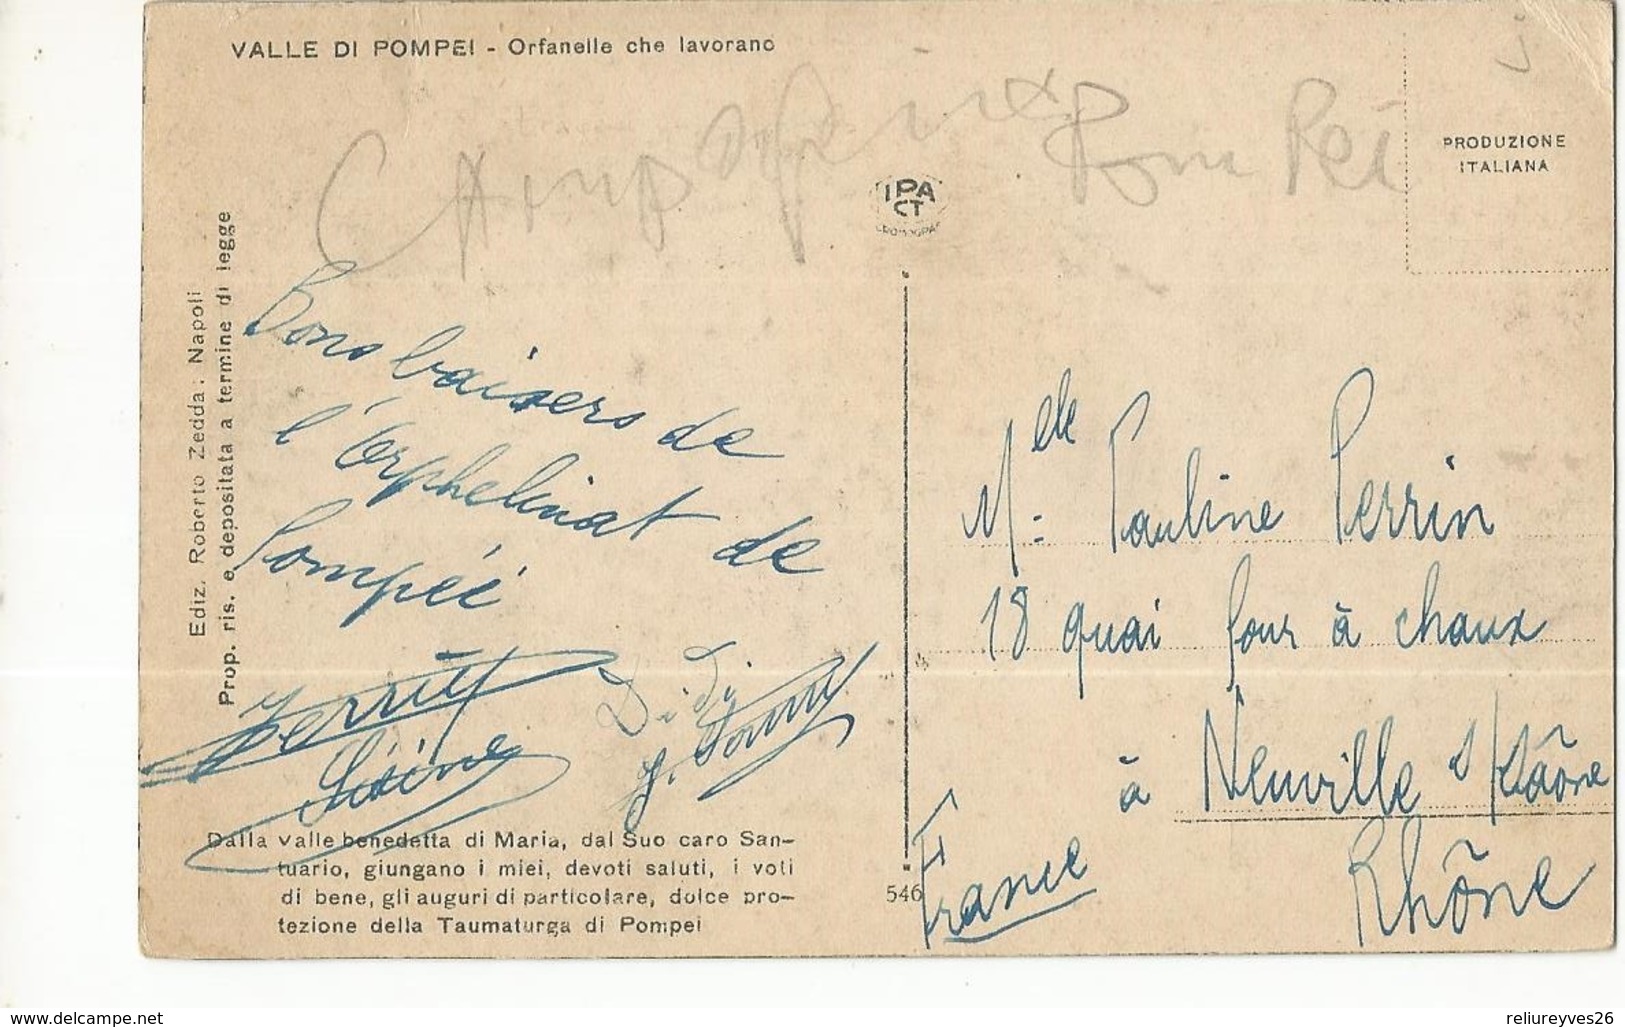 VALLE DI POMPEI - Orfanelle che lavorano
PRODUZIONE
ITALIANA
IPA
CT
Pom Pei
Ediz. Roberto Zedda: Napoli
Prop. ris. e depositata a termine di legge
Bons baisers de
l'Orphelinat de
Pompéi
Didi
Melle Pauline Perrin
18 quai four à chaux
à Neuville s/Saône
Rhône
France
Dalla valle benedetta di Maria, dal Suo caro San-
tuario, giungano i miei, devoti saluti, i voti
di bene, gli auguri di particolare, dolce pro-
tezione della Taumaturga di Pompei
546
www.delcampe.net
reliureyves26